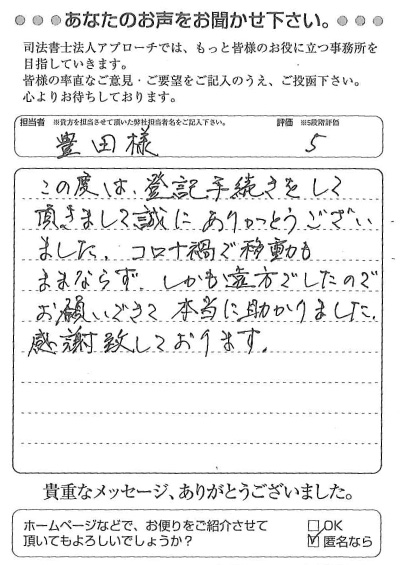 ●●●●あなたのお声をお聞かせ下さい。●●●●
司法書士法人アプローチでは、もっと皆様のお役に立つ事務所を
目指していきます。
皆様の率直なご意見・ご要望をご記入のうえ、ご投函下さい。
心よりお待ちしております。
担当者 ※貴方を担当させて頂いた弊社担当者名をご記入下さい。 評価 ※5段階評価
豊田様 5
この度は、登記手続きをして
頂きまして誠にありがとうござい
ました。コロナ禍で移動も
ままならず、しかも遠方でしたので
お願いできて本当に助かりました。
感謝致しております。
貴重なメッセージ、ありがとうございました。
ホームページなどで、お便りをご紹介させて □OK
頂いてもよろしいでしょうか？ ☑匿名なら